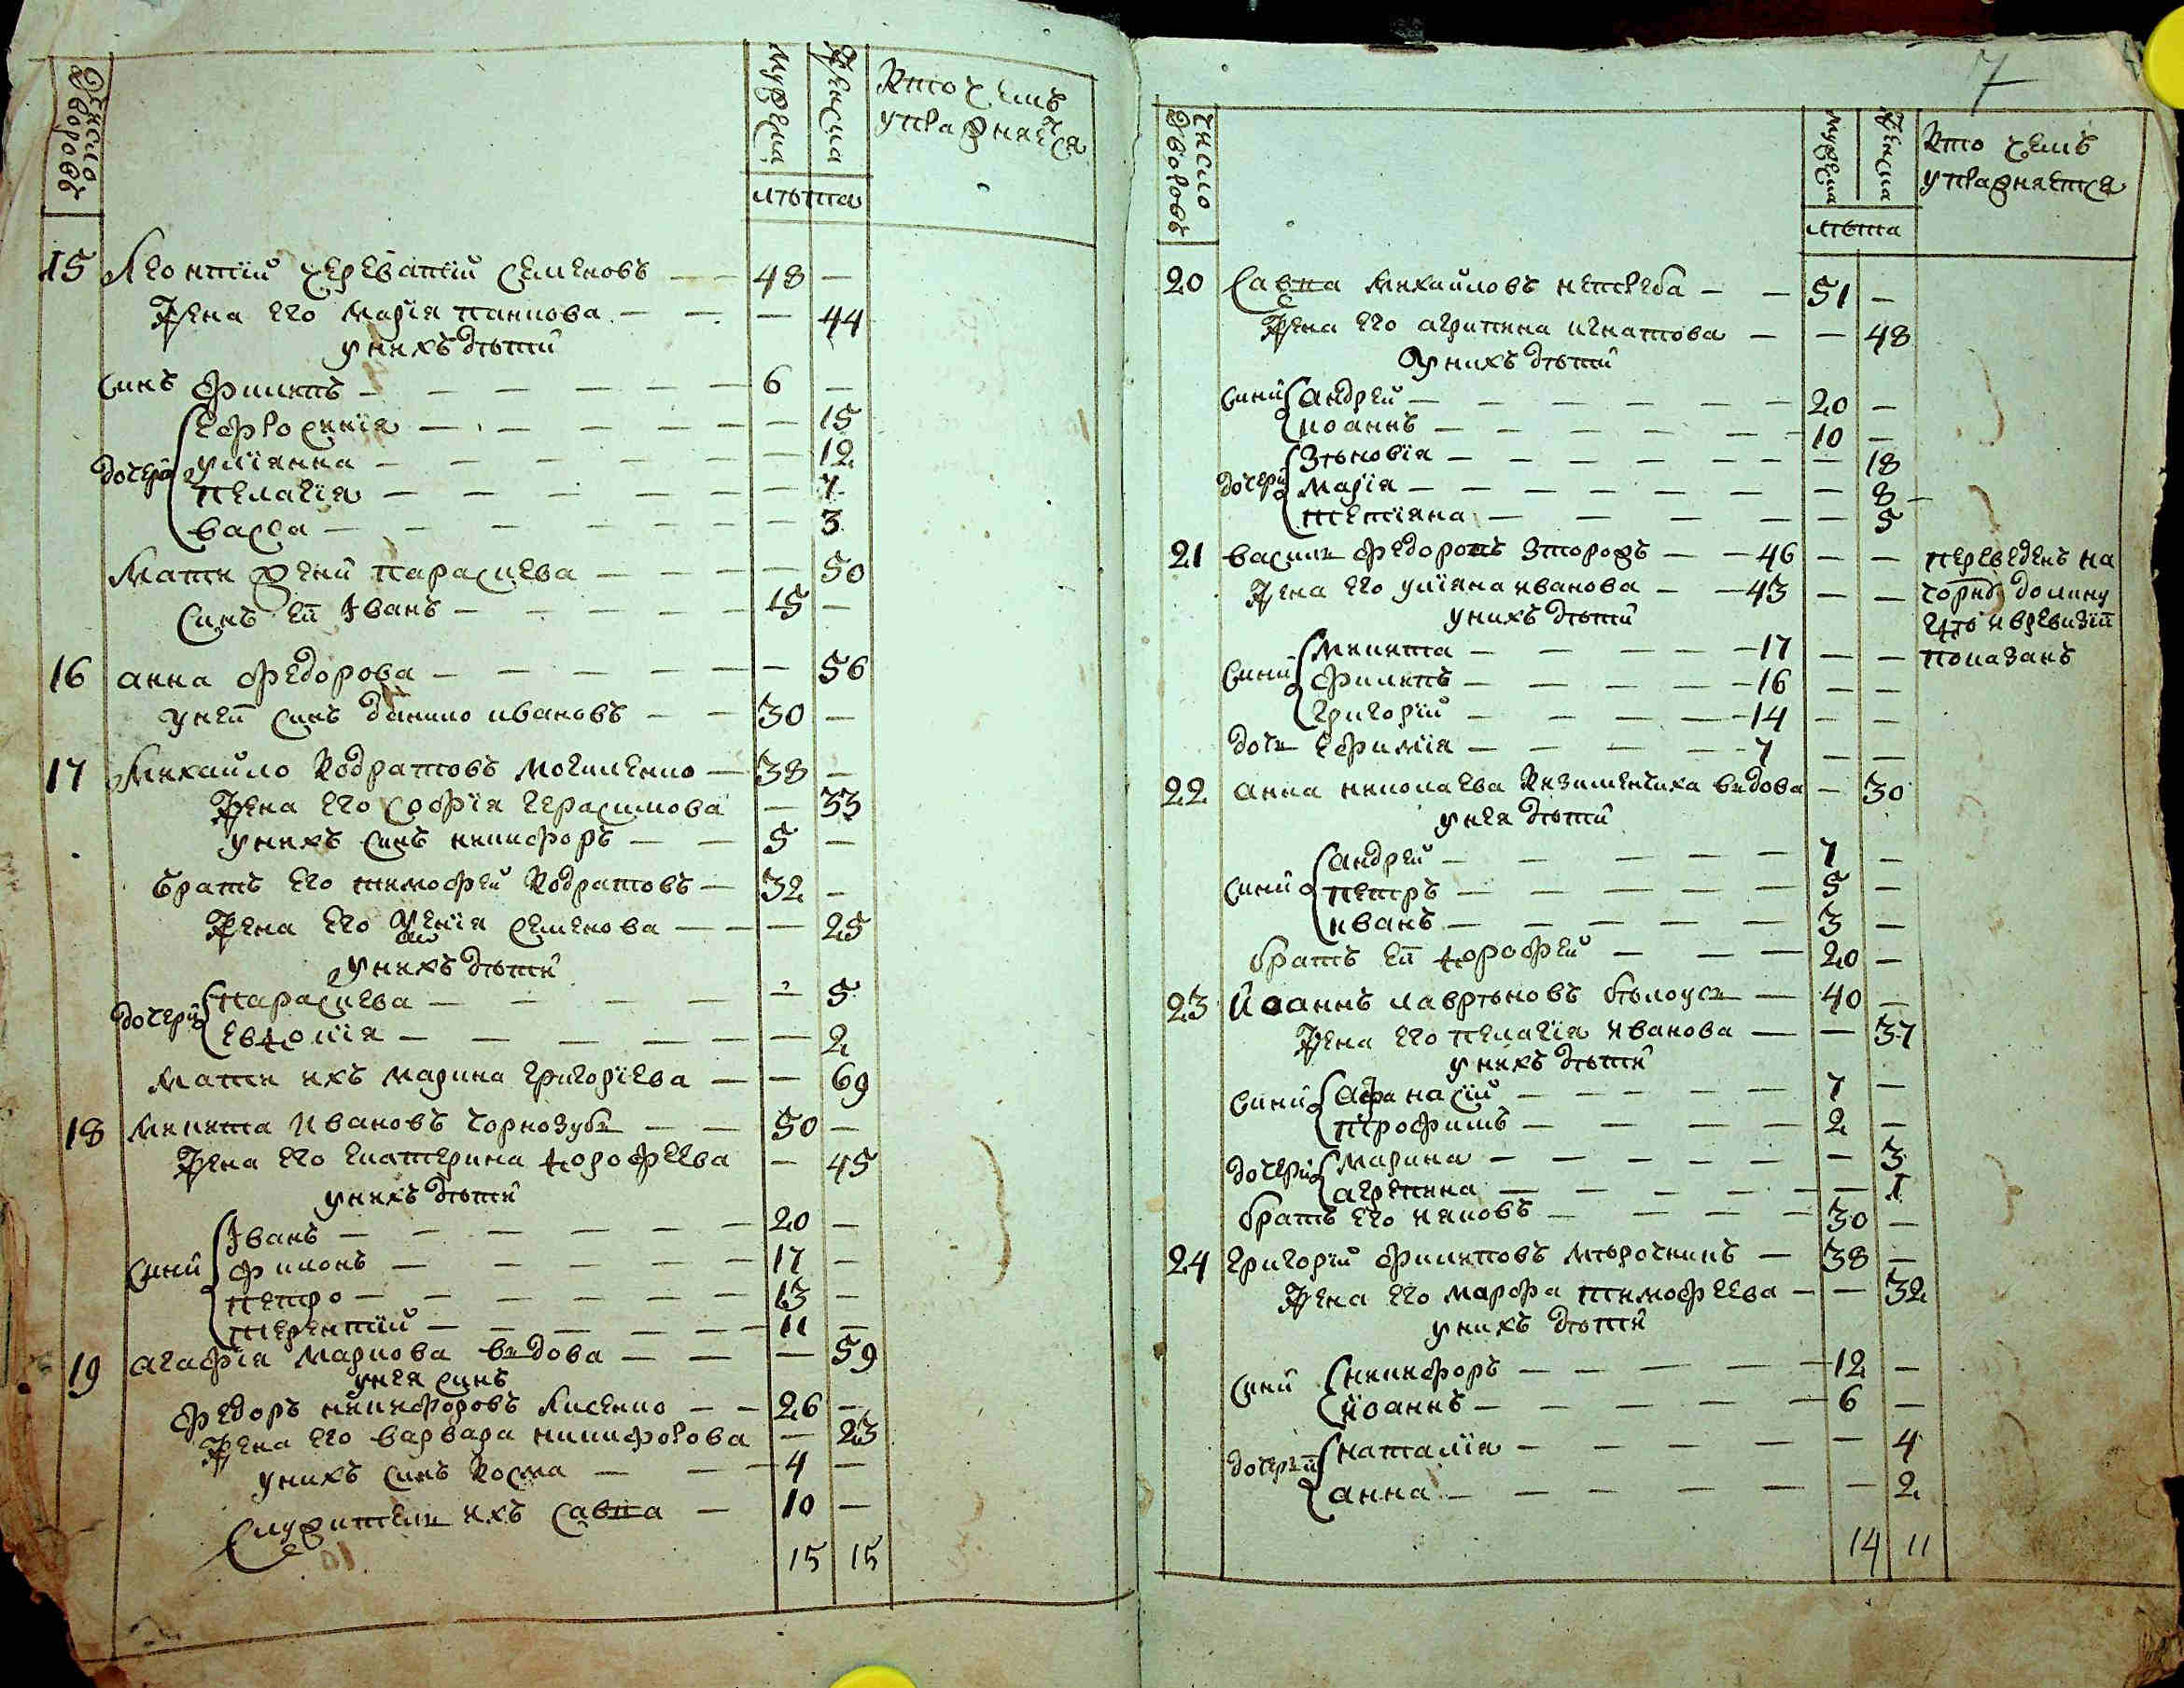 Число дворовъ
мужеска
женска
Кто чемъ
упражняется
лѣта
15 Леонтій череватій Семеновъ — 48 —
Жена его Марія панкова — — 44
у нихъ дѣти
Синъ филипъ — 6 —
дочери Ефросинія — — 15
Уліянна — — 12
пелагія — — 7
васса — — 3
Мати жени параскева — — 50
Синъ еи Іванъ — 15 —
16 анна федорова — — 56
у неи синъ данило ивановъ — 30 —
17 Михайло Кодратовъ могиленко — 38 —
Жена его Софія герасимова — 33
у нихъ синъ никифоръ — 5 —
братъ его тимофей Кодратовъ — 32 —
Жена его Ксенія семенова — — 25
у нихъ дѣти
дочери параскева — — 5
Евдокія — — 2
Мати ихъ марина григоріева — — 69
18 Микита Ивановъ чорнозубъ — 50 —
Жена его екатерина дорофеева — 45
у нихъ дѣти
Сини Іванъ — 20 —
филонъ — 17 —
петро — 13 —
терентій — 11 —
19 агафія маркова вдова — — 59
у нея синъ
федоръ никифоровъ Лисенко — 26 —
Жена его варвара никифорова — 23
у нихъ синъ Косма — 4 —
Служитель ихъ Савка — 10 —
15 15
7
число дворовъ
мужеска
женска
Кто чемъ
упражняется
лѣта
20 Савка михайловъ нетреба — 51 —
Жена его агрипина игнатова — — 48
У нихъ дѣти
Сини андрей — 20 —
иоаннъ — 10 —
дочери Зѣновія — — 18
марія — — 8
тетіяна — — 5
21 василь федоровъ — 46 — — переведенъ на
Жена его уліяна иванова — 43 — — долину
у нихъ дѣти где и в ревизіи
Сини Микита — 17 — — показанъ
филипъ — 16 — —
григорій — 14 — —
дочь Ефимія — 7 — —
22 анна николаева вдова — 30
у нея дѣти
Сини андрей — 7 —
петръ — 5 —
иванъ — 3 —
братъ еи дорофей — 20 —
23 Иоаннъ лавреновъ бѣлоусъ — 40 —
Жена его пелагія иванова — — 37
у нихъ дѣти
Сини афанасій — 7 —
трофимъ — 2 —
дочери марина — — 3
агрепина — — 1
братъ его яковъ — 30 —
24 григорій филиповъ мѣрочникъ — 38 —
Жена его марфа тимофеева — — 32
у нихъ дѣти
Сини никифоръ — 12 —
Иоаннъ — 6 —
дочери наталія — — 4
анна — — 2
14 11